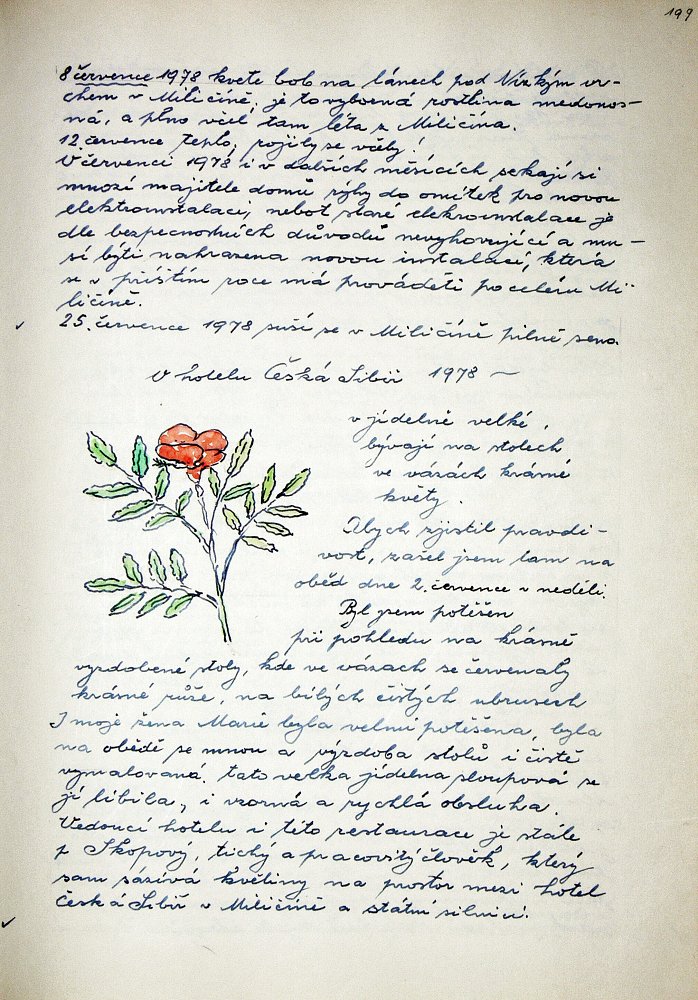 199
8 července 1978 kvete bob na lánech pod Nízkým vr-
chem v Miličíně, je to výborná rostlina medonos-
ná, a plno včel tam létá z Miličína.
12. července teplo, rojily se včely!
V červenci 1978 i v dalších měsících sekají si
mnozí majitelé domů rýhy do omítek pro novou
elektroinstalaci, neboť staré elekroinstalace je
dle bezpecnostních důvodů nevyhovující a mu-
sí býti nahrazena novou instalací, která
se v příštím roce má prováděti po celém Mi-
ličíně.
25. července 1978 suší se v Miličíně pilně seno.
V hotelu Česká Sibiř 1978 —
v jídelně velké,
bývají na stolech
ve vázách krásné
květy.
Abych zjistil pravdi-
vost, zašel jsem tam na
oběd dne 2. července v neděli.
Byl jsem potěšen
při pohledu na krásně
vyzdobené stoly, kde ve vázách se červenaly
krásné růže, na bílých čistých ubrusech
I moje žena Marie byla velmi potěšena, byla
na obědě se mnou a výzdoba stolů i čistě
vymalovaná, tato velká jídelna sloupová se
jí líbila, i vzorná a rychlá obsluha.
Vedoucí hotelu i této restaurace je stále
p Skopový, tichý a pracovitý člověk, který
sám sázívá květiny na prostor mezi hotel
Česká Sibiř v Miličíně a státní silnicí.